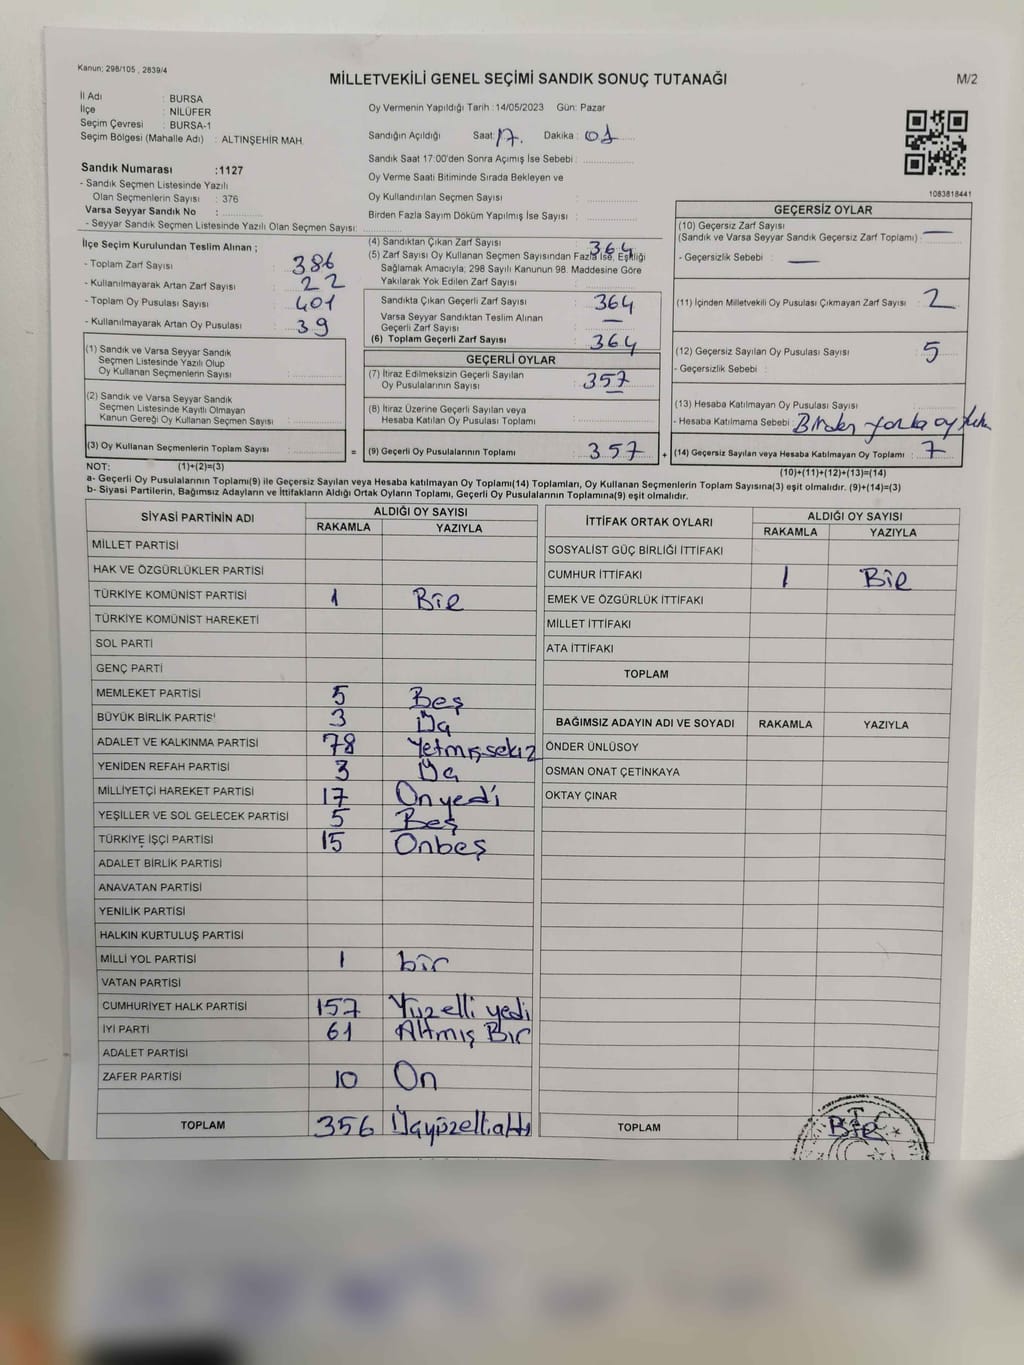 Kanun: 298/105 , 2839/4
MİLLETVEKİLİ GENEL SEÇİMİ SANDIK SONUÇ TUTANAĞI
M/2
İl Adı : BURSA
İlçe : NİLÜFER
Seçim Çevresi : BURSA-1
Seçim Bölgesi (Mahalle Adı) : ALTINŞEHİR MAH.
Oy Vermenin Yapıldığı Tarih :14/05/2023 Gün: Pazar
Sandığın Açıldığı Saat: 17. Dakika : 01
Sandık Saat 17:00'den Sonra Açımış İse Sebebi :
Oy Verme Saati Bitiminde Sırada Bekleyen ve
Oy Kullandırılan Seçmen Sayısı :
Birden Fazla Sayım Döküm Yapılmış İse Sayısı :
1083818441
Sandık Numarası :1127
- Sandık Seçmen Listesinde Yazılı
Olan Seçmenlerin Sayısı : 376
Varsa Seyyar Sandık No :
- Seyyar Sandık Seçmen Listesinde Yazılı Olan Seçmen Sayısı:
İlçe Seçim Kurulundan Teslim Alınan ;
- Toplam Zarf Sayısı : 386
- Kullanılmayarak Artan Zarf Sayısı : 22
- Toplam Oy Pusulası Sayısı : 401
- Kullanılmayarak Artan Oy Pusulası : 39
(1) Sandık ve Varsa Seyyar Sandık
Seçmen Listesinde Yazılı Olup
Oy Kullanan Seçmenlerin Sayısı :
(2) Sandık ve Varsa Seyyar Sandık
Seçmen Listesinde Kayıtlı Olmayan
Kanun Gereği Oy Kullanan Seçmen Sayısı :
(3) Oy Kullanan Seçmenlerin Toplam Sayısı :
(4) Sandıktan Çıkan Zarf Sayısı : 364
(5) Zarf Sayısı Oy Kullanan Seçmen Sayısından Fazla İse, Eşitliği
Sağlamak Amacıyla; 298 Sayılı Kanunun 98. Maddesine Göre
Yakılarak Yok Edilen Zarf Sayısı :
Sandıkta Çıkan Geçerli Zarf Sayısı : 364
Varsa Seyyar Sandıktan Teslim Alınan
Geçerli Zarf Sayısı : —
(6) Toplam Geçerli Zarf Sayısı : 364
GEÇERLİ OYLAR
(7) İtiraz Edilmeksizin Geçerli Sayılan
Oy Pusulalarının Sayısı : 357
(8) İtiraz Üzerine Geçerli Sayılan veya
Hesaba Katılan Oy Pusulası Toplamı :
= (9) Geçerli Oy Pusulalarının Toplamı : 357
GEÇERSİZ OYLAR
(10) Geçersiz Zarf Sayısı
(Sandık ve Varsa Seyyar Sandık Geçersiz Zarf Toplamı) : —
- Geçersizlik Sebebi : —
(11) İçinden Milletvekili Oy Pusulası Çıkmayan Zarf Sayısı : 2
(12) Geçersiz Sayılan Oy Pusulası Sayısı : 5
- Geçersizlik Sebebi :
(13) Hesaba Katılmayan Oy Pusulası Sayısı :
- Hesaba Katılmama Sebebi : Birden fazla oy
+ (14) Geçersiz Sayılan veya Hesaba Katılmayan Oy Toplamı : 7
NOT: (1)+(2)=(3)
(10)+(11)+(12)+(13)=(14)
a- Geçerli Oy Pusulalarının Toplamı(9) ile Geçersiz Sayılan veya Hesaba katılmayan Oy Toplamı(14) Toplamları, Oy Kullanan Seçmenlerin Toplam Sayısına(3) eşit olmalıdır. (9)+(14)=(3)
b- Siyasi Partilerin, Bağımsız Adayların ve İttifakların Aldığı Ortak Oyların Toplamı, Geçerli Oy Pusulalarının Toplamına(9) eşit olmalıdır.
SİYASİ PARTİNİN ADI
ALDIĞI OY SAYISI
RAKAMLA YAZIYLA
MİLLET PARTİSİ
HAK VE ÖZGÜRLÜKLER PARTİSİ
TÜRKİYE KOMÜNİST PARTİSİ 1 Bir
TÜRKİYE KOMÜNİST HAREKETİ
SOL PARTİ
GENÇ PARTİ
MEMLEKET PARTİSİ 5 Beş
BÜYÜK BİRLİK PARTİSİ 3 Üç
ADALET VE KALKINMA PARTİSİ 78 Yetmişsekiz
YENİDEN REFAH PARTİSİ 3 Üç
MİLLİYETÇİ HAREKET PARTİSİ 17 Onyedi
YEŞİLLER VE SOL GELECEK PARTİSİ 5 Beş
TÜRKİYE İŞÇİ PARTİSİ 15 Onbeş
ADALET BİRLİK PARTİSİ
ANAVATAN PARTİSİ
YENİLİK PARTİSİ
HALKIN KURTULUŞ PARTİSİ
MİLLİ YOL PARTİSİ 1 bir
VATAN PARTİSİ
CUMHURİYET HALK PARTİSİ 157 Yüzelli yedi
İYİ PARTİ 61 Altmış Bir
ADALET PARTİSİ
ZAFER PARTİSİ 10 On
TOPLAM 356 Üçyüzellialtı
İTTİFAK ORTAK OYLARI
ALDIĞI OY SAYISI
RAKAMLA YAZIYLA
SOSYALİST GÜÇ BİRLİĞİ İTTİFAKI
CUMHUR İTTİFAKI 1 Bir
EMEK VE ÖZGÜRLÜK İTTİFAKI
MİLLET İTTİFAKI
ATA İTTİFAKI
TOPLAM
BAĞIMSIZ ADAYIN ADI VE SOYADI RAKAMLA YAZIYLA
ÖNDER ÜNLÜSOY
OSMAN ONAT ÇETİNKAYA
OKTAY ÇINAR
TOPLAM Bir
T.C.